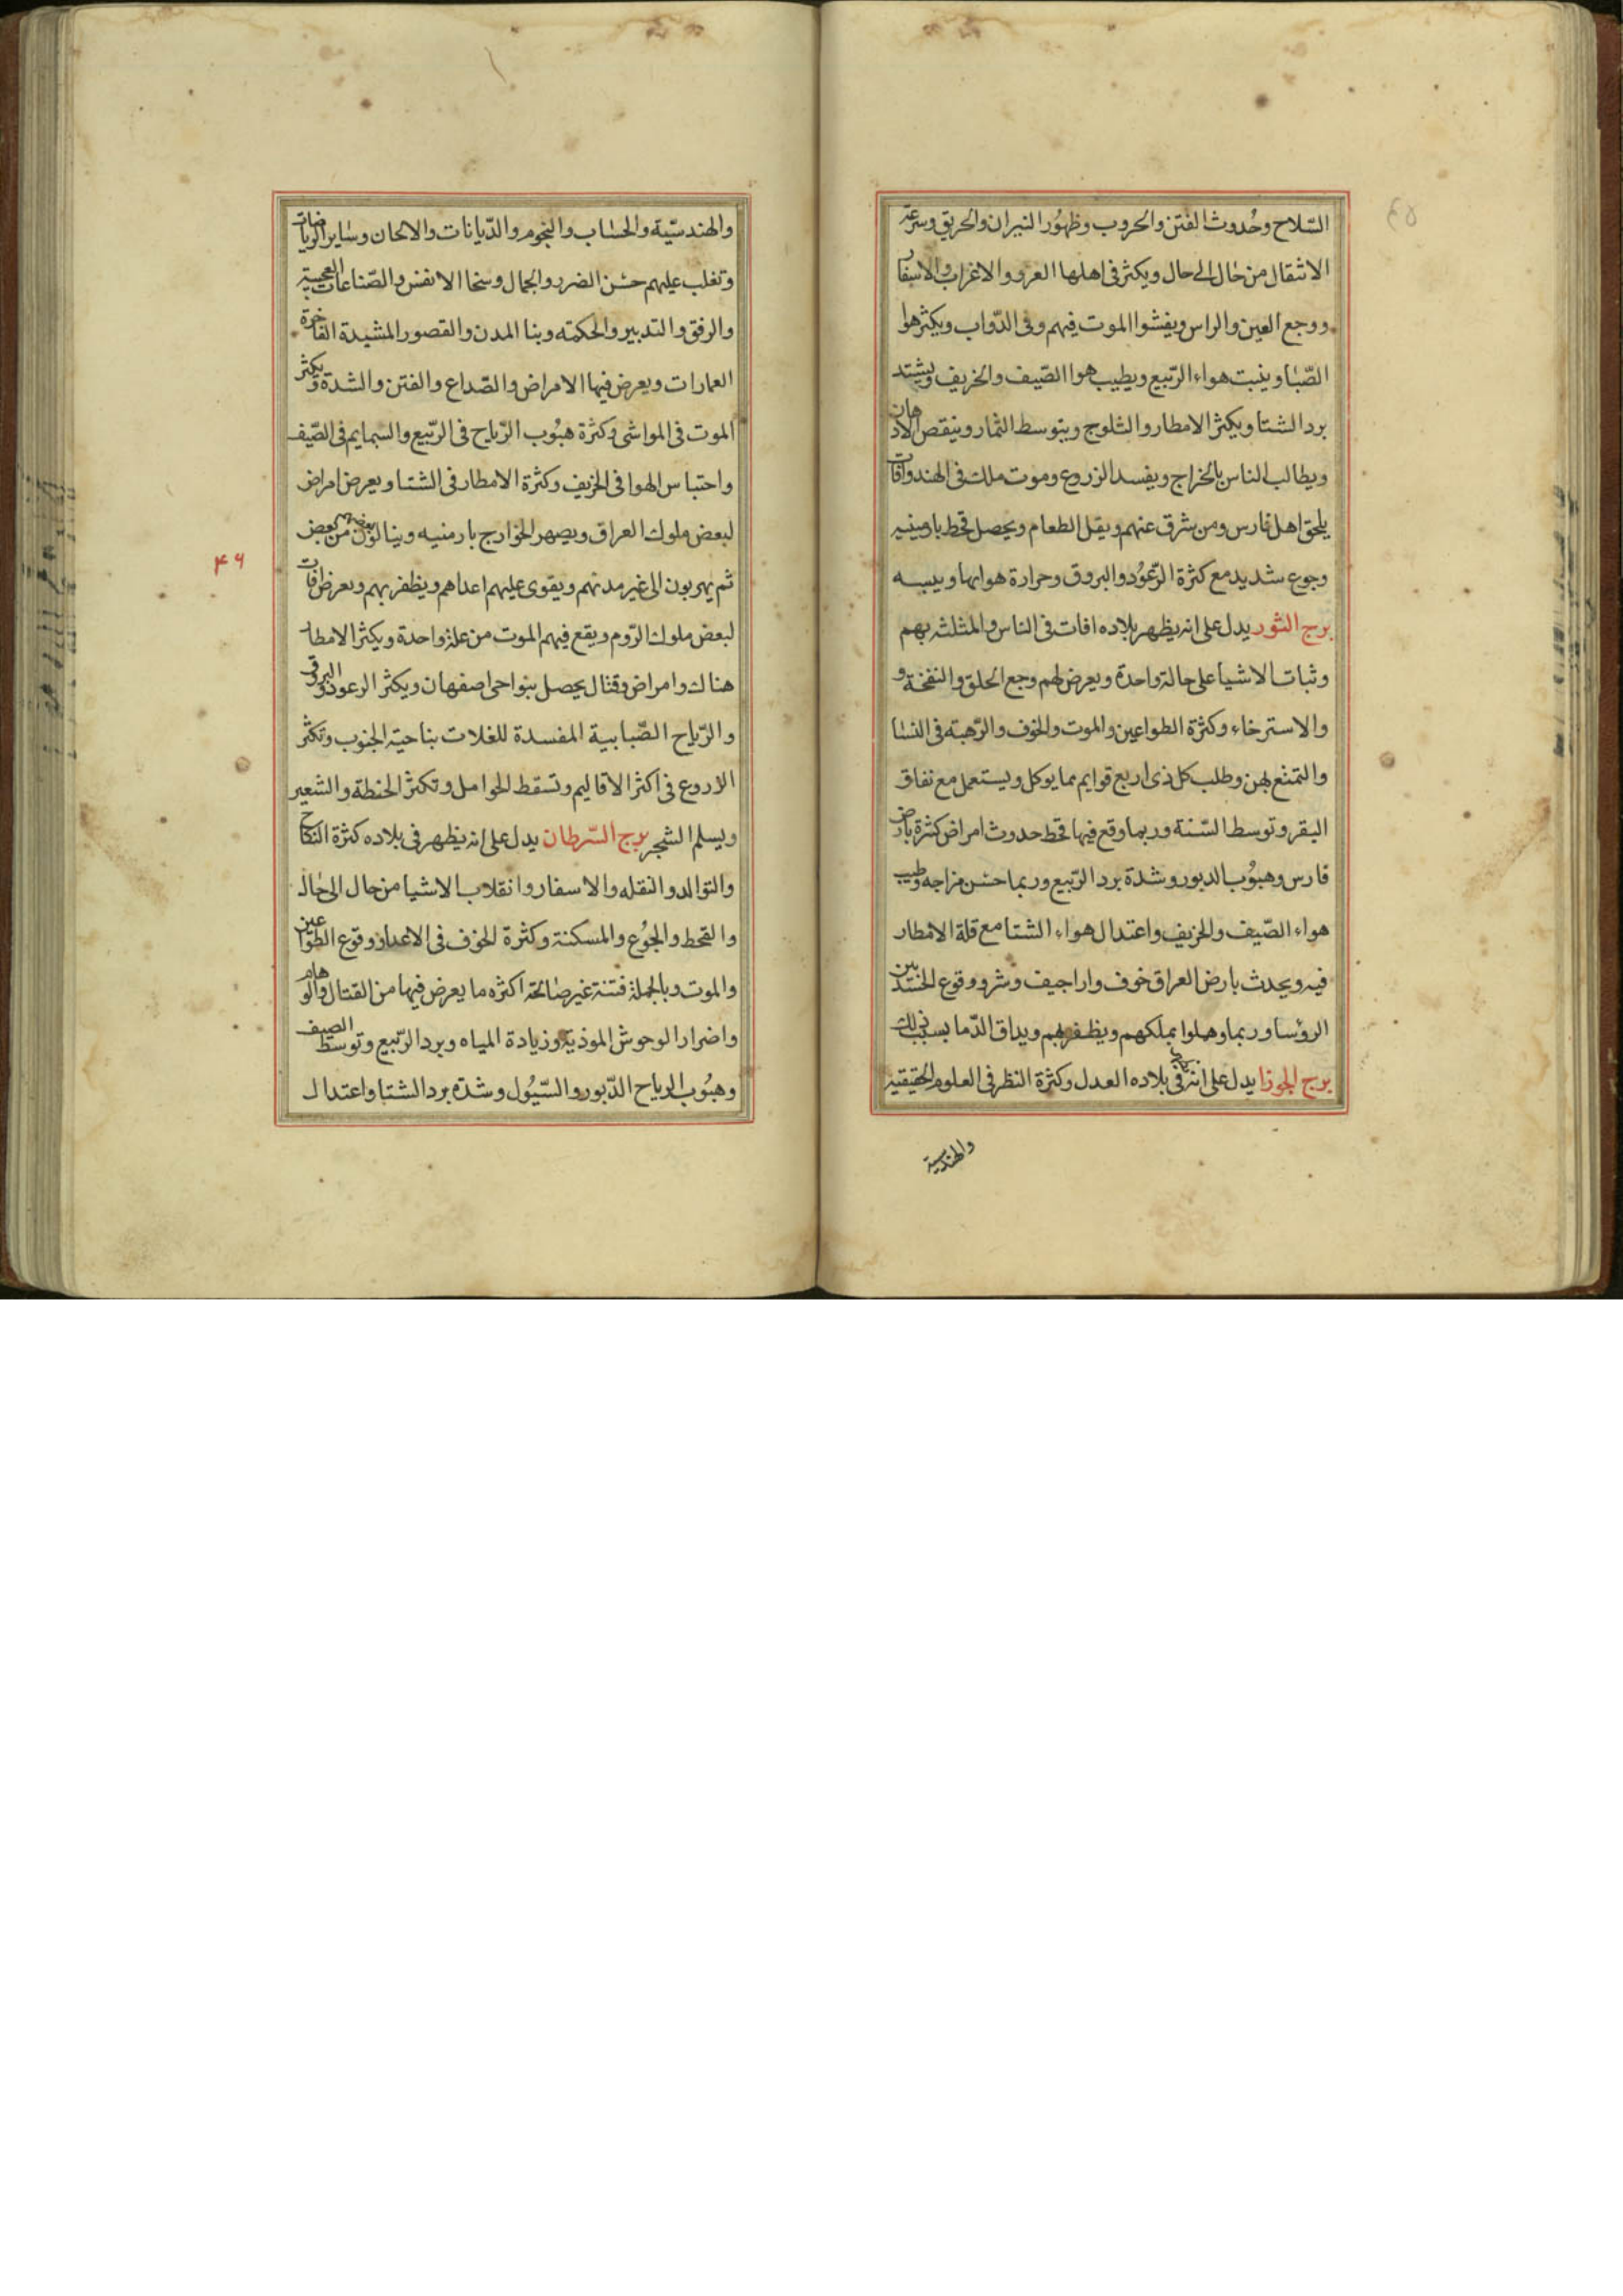 السّلاح وحُدوث الفتن والحروب وظهُور النيران والحريق وسرعة
الانتقال من حال الى حال ويكثر فى اهلها العرو والاغراب والاسفار
ووجع العين والراس ويفشوا الموت فيهم وفى الدّواب ويكثر هوا
الصّبا وينبت هواء الرّبيع ويطيب هوا الصّيف والخريف ويشتد
برد الشتا ويكثر الامطار والثلوج ويتوسط الثمار وينقص الادهان
ويطالب الناس بالخراج ويفسد الزروع وموت ملك فى الهند وافات
يلحق اهل فارس ومن شرق عنهم ويقل الطعام ويحصل قحط بارمينيه
وجوع شديد مع كثرة الرّعوُد والبروق وحرارة هوايها ويبسه
برج الثور يدل على انه يظهر ببلاده افات فى الناس والمثلثه بهم
وثبات الاشيا على حالة واحدة ويعرض لهم وجع الحلق والنفخة و
والاسترخاء وكثرة الطواعين والموت والخوف والرّهبة فى النسا
والتمتع بهن وطلب كل ذى اربع قوايم مما يوكل ويستعمل مع نفاق
البقر وتوسط السّنة وربما وقع فيها قحط حدوث امراض كثرة بارض
فارس وهبوُب الدبور وشدة برد الرّبيع وربما حسن مزاجه وطيب
هواء الصّيف والخريف واعتدال هواء الشتا مع قلة الامطار
فيه ويحدث بارض العراق خوف واراجيف وشر ووقوع الخُنْف بين
الرؤسا وربما وهلوا بملكهم ويظفر بهم ويداق الدّما بسبب ذلك
برج الجوزا يدل على انه يكثر فى بلاده العدل وكثرة النظر فى العلوم الحقيقيه
والهندسية
والهندسيّة والحساب والنجوم والدّيانات والالحان وساير الرياضات
وتغلب عليهم حسْن الضرر والجمال وسخا الانفس والصّناعات العجيبة
والرفق والتدبير والحكمته وبنا المدن والقصور المشيدة الفاخرة
العمارات ويعرض فيها الامراض والصّداع والفتن والشدة ويكثر
الموت فى المواشى وكثرة هبوُب الرّياح فى الرّبيع والسمايم فى الصّيف
واحتباس الهوا فى الخريف وكثرة الامطار فى الشتا ويعرض امراض
لبعض ملوك العراق ويصهر الخوارج بارمنيه وينالون بعضهم من بعض
۴۶
ثم يهربون الى غير مدنهم ويقوى عليهم اعداهم ويظفر بهم ويعرض افات
لبعض ملوك الرّوم ويقع فيهم الموت من علة واحدة ويكثر الامطار
هناك وامراض وقتال يحصل بنواحى اصفهان ويكثر الرعود والبروق
والرّياح الضّبابية المفسدة للغلات بناحية الجنوب وتكثر
الاروع فى اكثر الاقاليم وتسقط الحوامل وتكثر الحنطة والشعير
ويسلم الشجر برج السّرطان يدل على انه يظهر فى بلاده كثرة النكاح
والتوالد والنقله والاسفار وانقلاب الاشيا من حال الى حال
والقحط والجوُع والمسكنة وكثرة الخوف فى الاعداو ووقوع الطواعين
والموت وبالجملة فتنة غير صالحة اكثره ما يعرض فيها من القتال والوهام
واضرار الوحوش الموذية وزيادة المياه وبرد الرّبيع وتوسط الصيف
وهبوُب الرياح الدّبور والسّيوُل وشدّة برد الشتا واعتدال